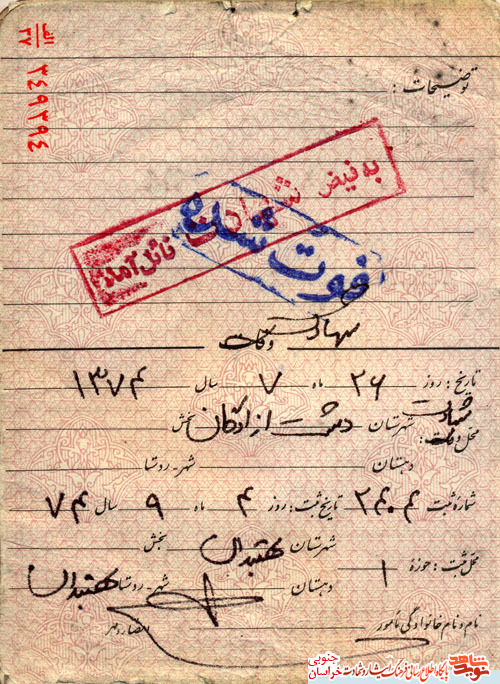 الف
۲۷
۳۴۹۳۹۴
توضیحات :
به فیض شهادت نائل آمد
فوت شده
شهادت
وفات
تاریخ : روز ۲۶ ماه ۷ سال ۱۳۷۴
شهادت
محل وفات : شهرستان دشت آزادگان بخش
دهستان شهر - روستا
شماره ثبت تاریخ ثبت : روز ۴ ماه ۹ سال ۷۴
محل ثبت : حوزه ۱ شهرستان نهبندان بخش
دهستان شهر - روستا نهبندان
نام و نام خانوادگی مأمور امضاء و مهر
نوید شاهد
پایگاه اطلاع رسانی فرهنگ ایثار و شهادت خراسان جنوبی